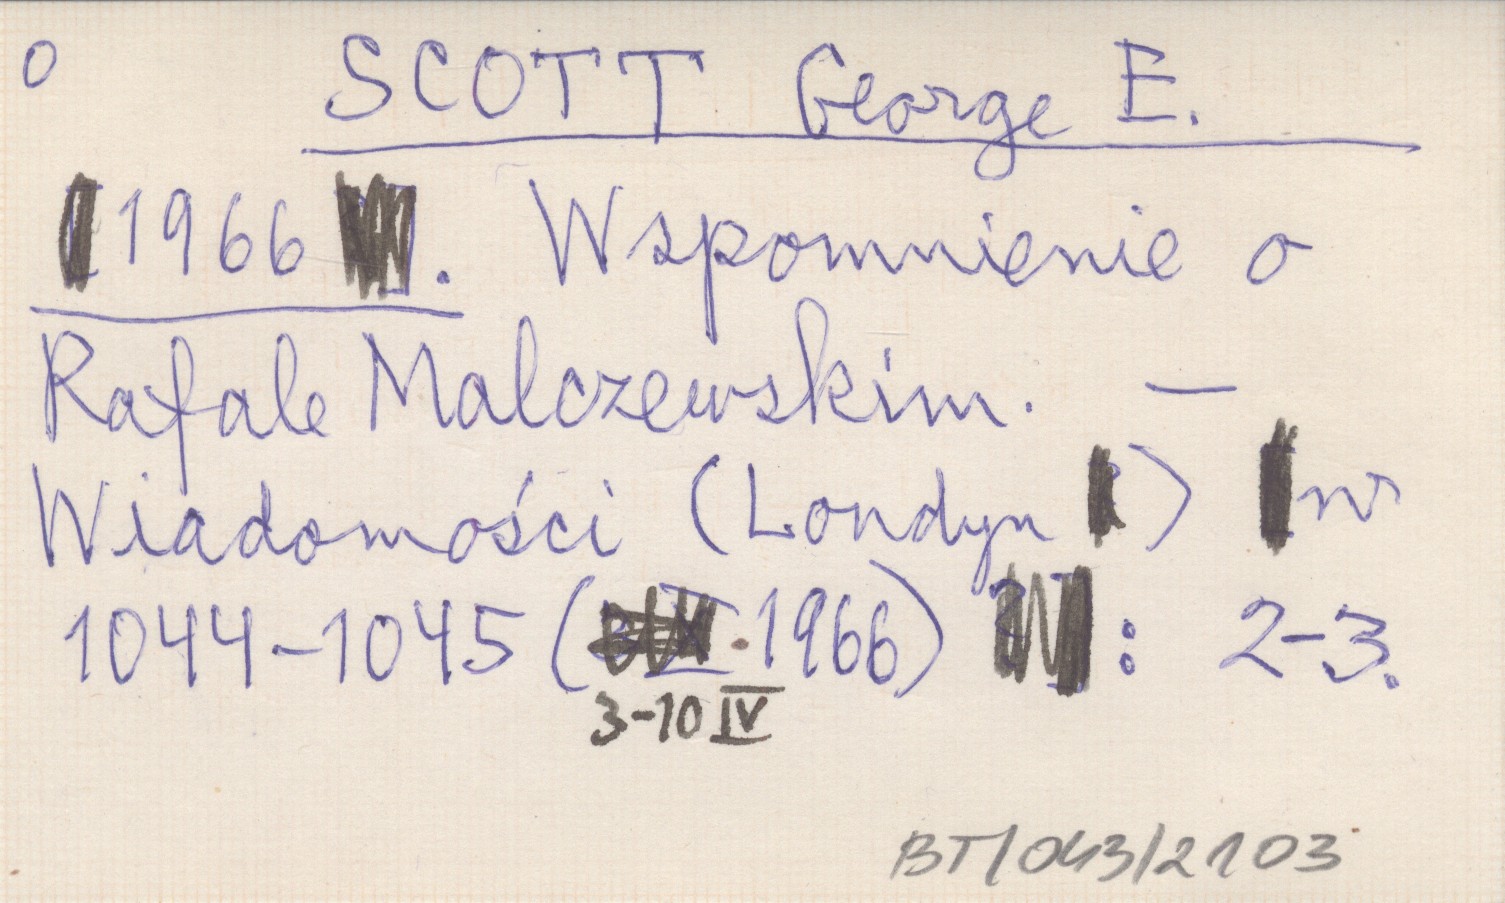 o SCOTT George E.
1966 . Wspomnienie o
Rafale Malczewskim. —
Wiadomości (Londyn ) nr
1044-1045 ( .1966) : 2-3.
3-10 IV
BT/043/2103